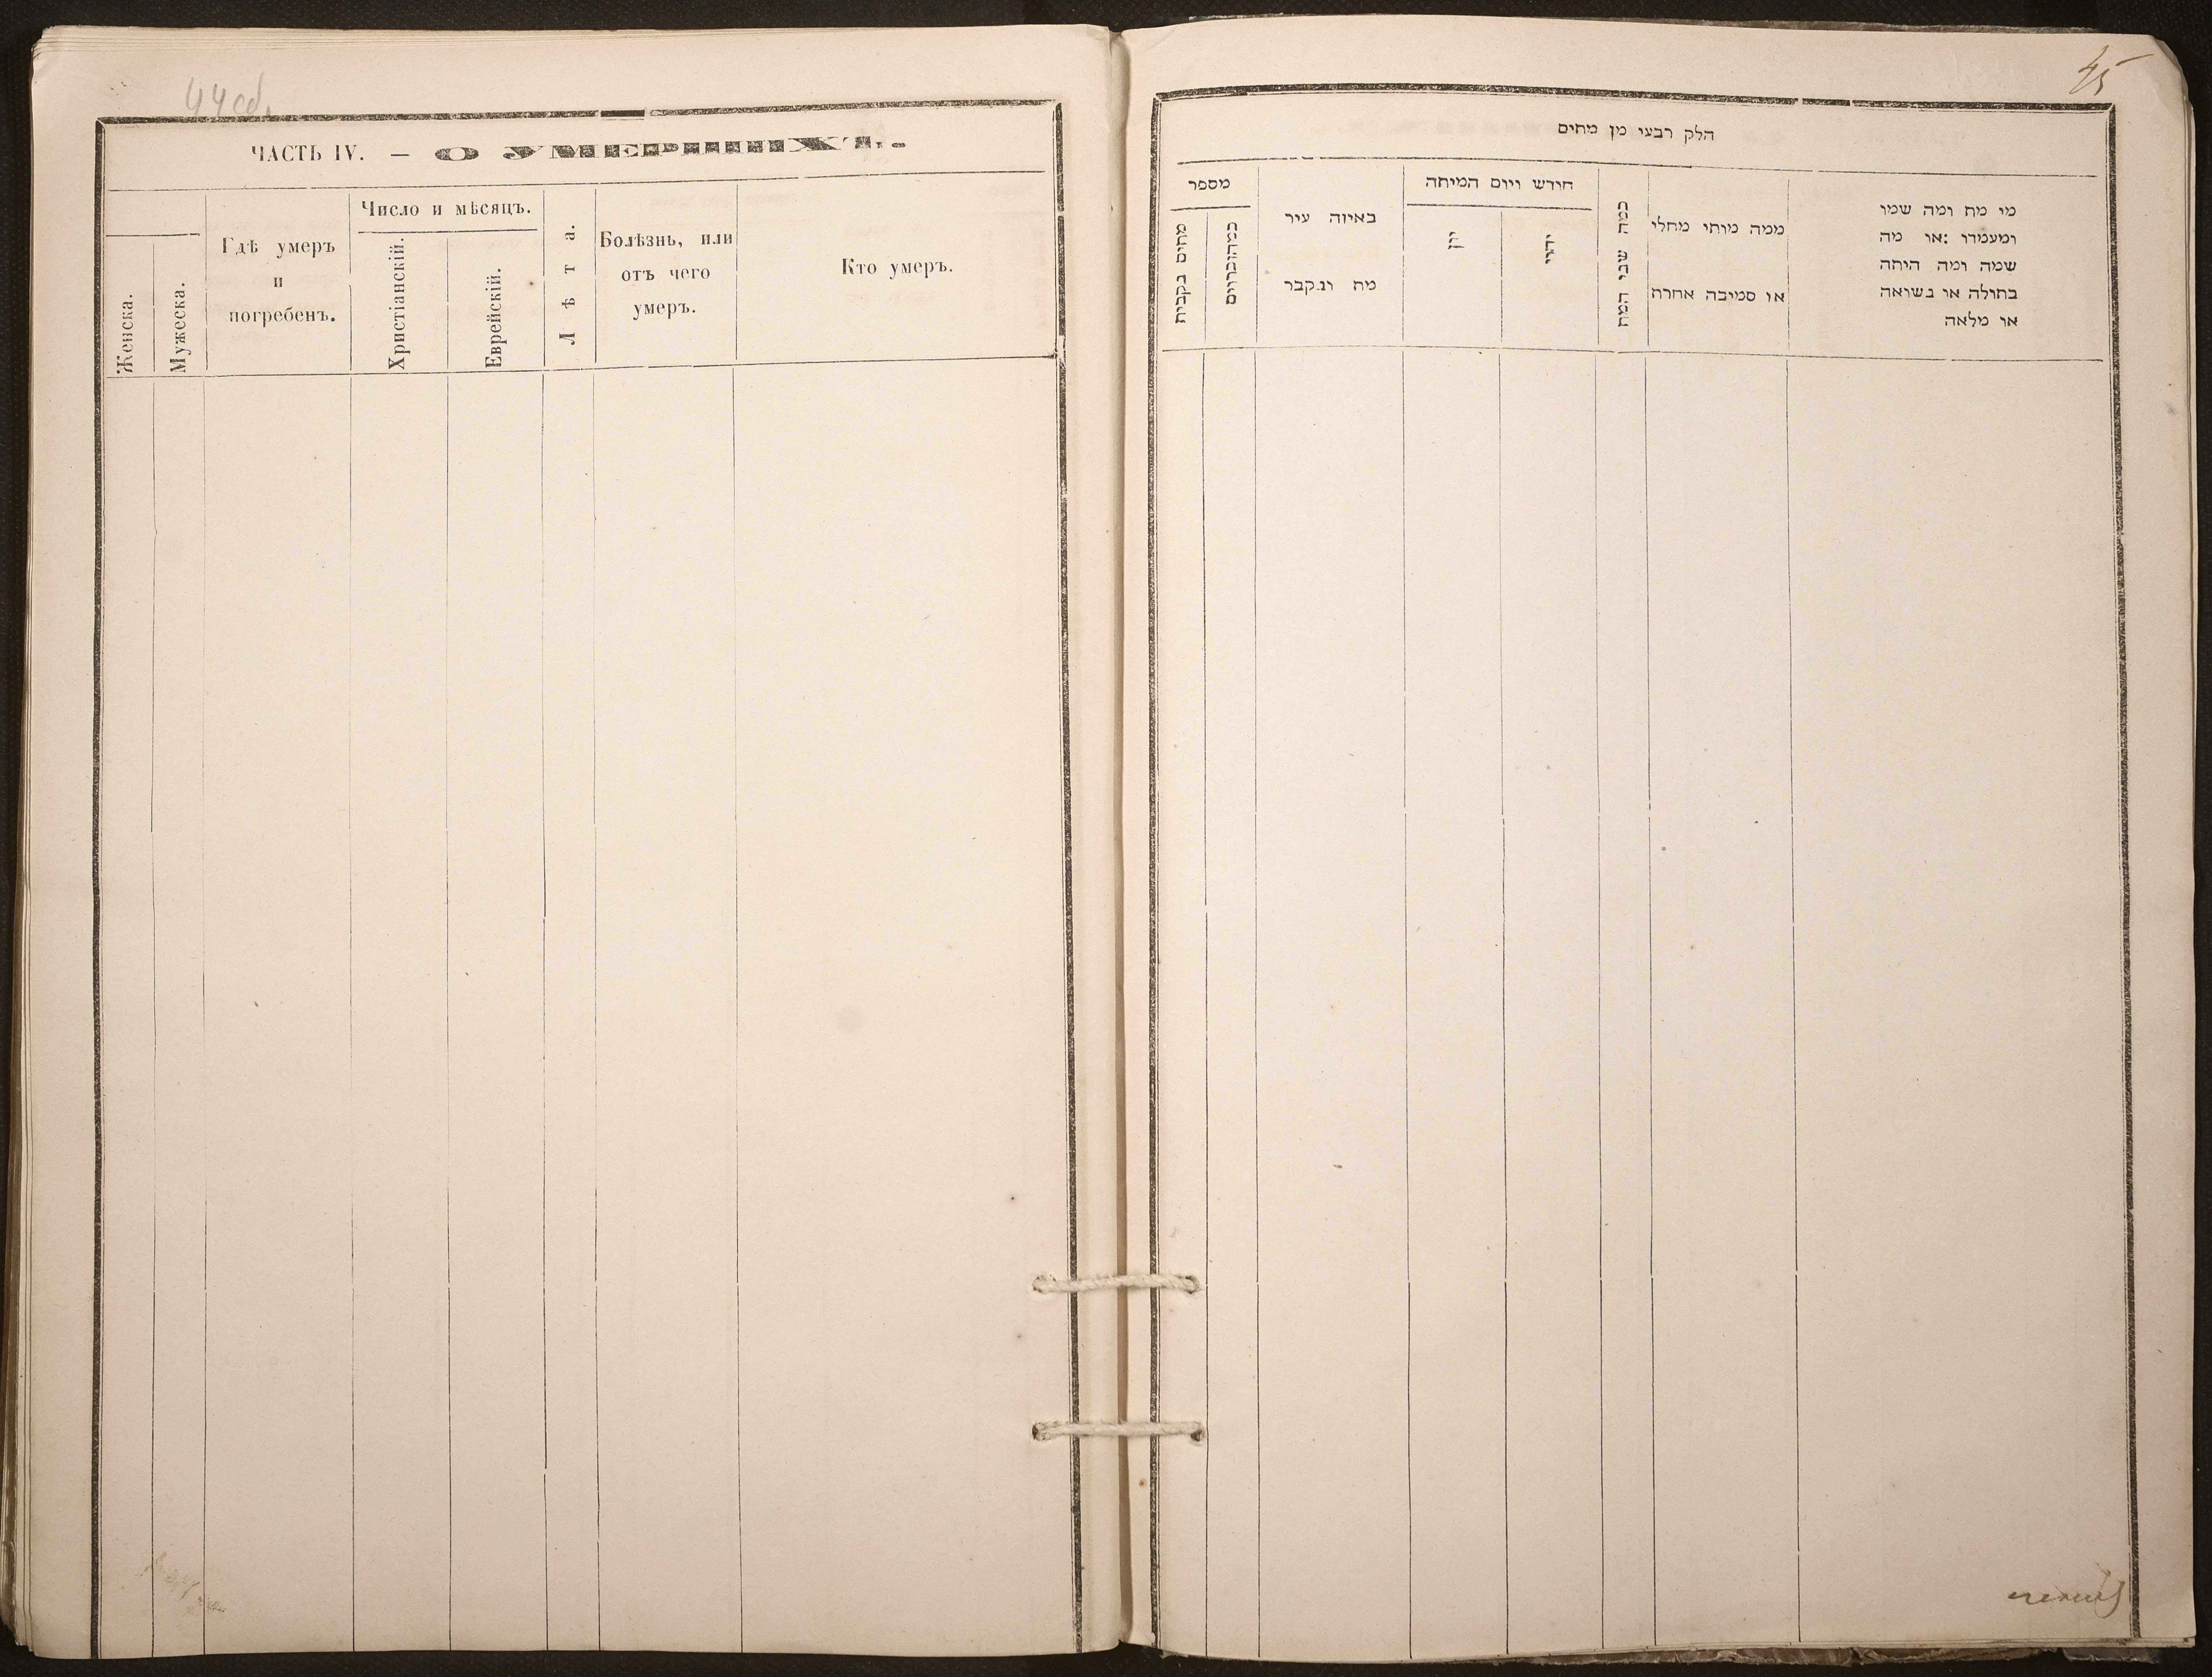 44 об.
ЧАСТЬ IV. — О УМЕРШИХЪ.
Женска.
Мужеска.
Гдѣ умеръ
и
погребенъ.
Число и мѣсяцъ.
Христіанскій.
Еврейскій.
Лѣта.
Болѣзнь, или
отъ чего
умеръ.
Кто умеръ.
45
הלק רבעי מן מתים
מספר
מתים נקבות
כמה זכרים
באיזה עיר
מת ונקבר
חודש ויום המיתה
יון
יהודי
כמה שני המת
ממה מותו מחלי
או סמיבה אחרת
מי מת ומה שמו
ומעמדו :או מה
שמה ומה היתה
בתולה או נשואה
או מלאה